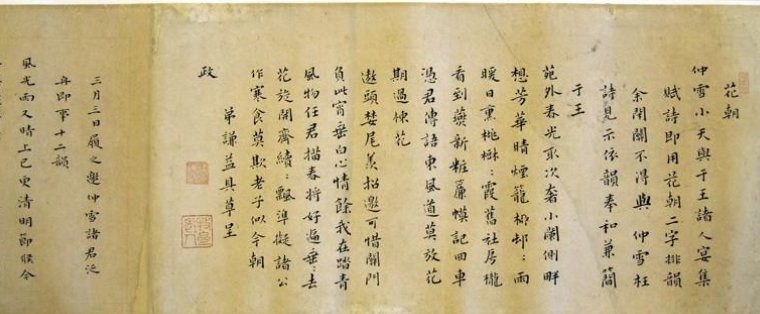 花朝
仲雪小天與于王諸人宴集
賦詩即用花朝二字排韻
余閉關不得與仲雪枉
詩見示依韻奉和兼簡
于王
苑外春光取次奢小闌側畔
想芳華晴煙籠柳邨:雨
暖日熏桃樹:霞舊社房櫳
看到燕新粧簾幙記回車
憑君傳語東風道莫放花
期過楝花
遨頭婪尾羨招邀可惜關門
負此宵垂白心情餘我在踏青
風物任君描春將好遍垂:去
花旋開齊續:飄準擬諸公
作寒食莫欺老子似今朝
弟謙益具草呈
政
三月三日履之邀仲雪諸君泛
舟即事十二韻
風光雨又晴上巳更清明節候今